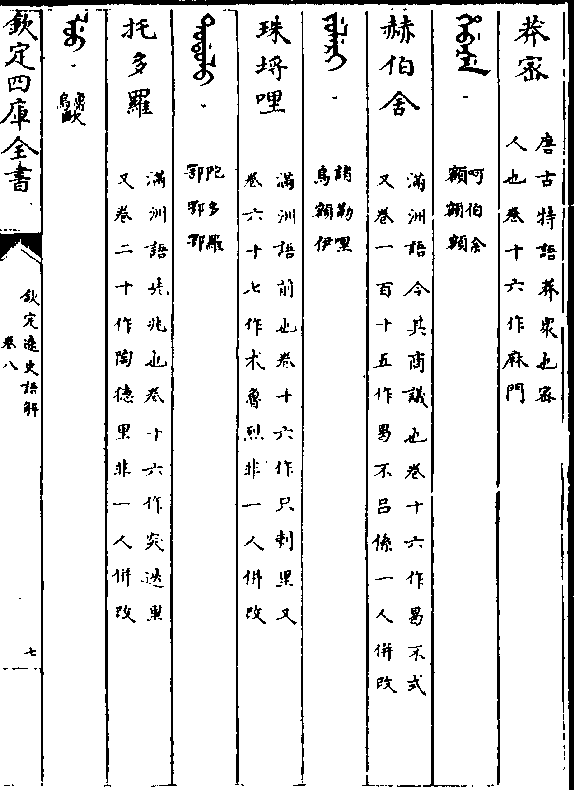 莽密
唐古特語莽衆也密
人也卷十六作麻門
赫伯舍
呵伯舍
額額額
滿洲語令其商議也卷十六作曷不式
又卷一百十五作曷不吕係一人併改
珠埒哩
諸勒哩
烏額伊
滿洲語前也卷十六作只剌里又
卷六十七作术魯烈非一人併改
托多羅
陀多羅
鄂鄂鄂
滿洲語兆也卷十六作突迭里
又卷二十作陶德里非一人併改
欽定四庫全書
欽定遼史語解
卷八
七